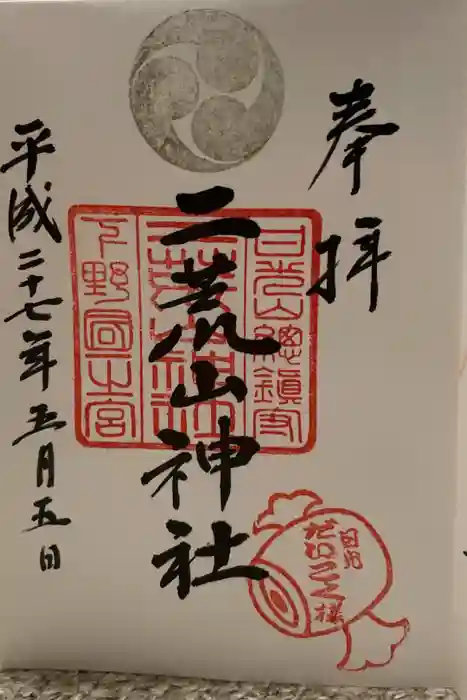 奉拝
日光山總鎮守
二荒山神社
二荒山神社
下野國一之宮
平成二十七年五月五日
日光
だいこく様